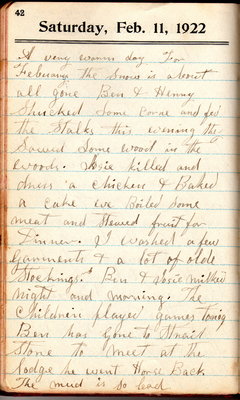 42
Saturday, Feb. 11, 1922
A very warm day For
February the snow is about
all gone Ben & Henry
Shucked some corn and fed
the Stalks this evening they
Sawed some wood in the
woods. Josie killed and
dress a chicken & Baked
a cake we Boiled some
meat and Stewed fruit for
Dinner. I washed a few
garments & a lot of olde
Stockings. Ben & Josie milked
night and morning. The
Children played games
Ben has gone to Strait
Stone to meet at the
lodge he went Horse Back
The mud is so bad